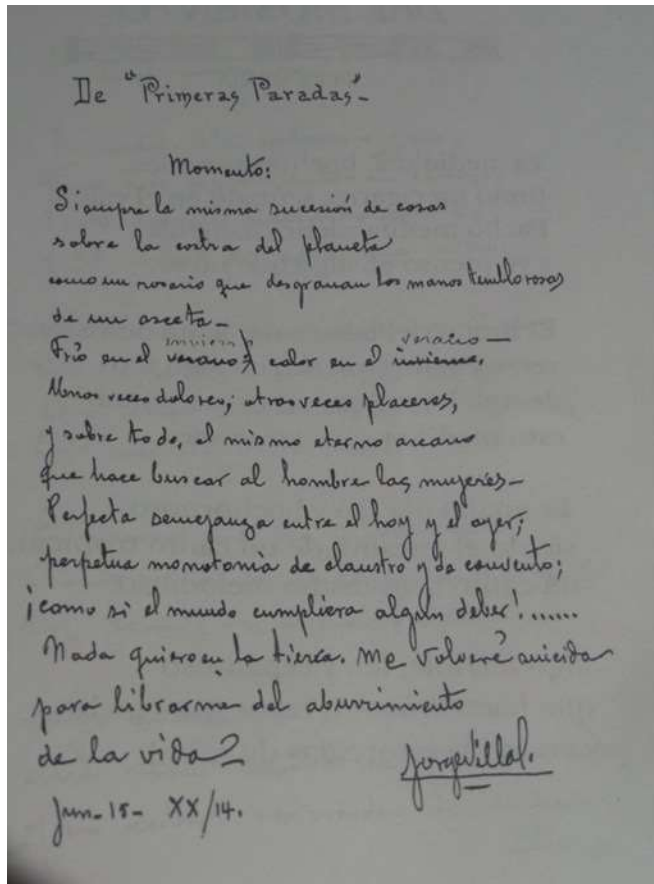 De "Primeras Paradas"-
Momento:
Siempre la misma sucesión de cosas
sobre la costra del planeta
como un rosario que desgranan las manos temblorosas
de un asceta-
invierno verano-
Frío en el verano, calor en el invierno.
Unas veces dolores; otras veces placeres,
y sobre todo, el mismo eterno arcano
que hace buscar al hombre las mujeres-
Perfecta semejanza entre el hoy y el ayer;
perpetua monotonía de claustro y de convento;
¡como si el mundo cumpliera algún deber!......
Nada quiero en la tierra. Me volveré suicida
para librarme del aburrimiento
de la vida?
Jorge Villal.
Jun-15- XX/14.